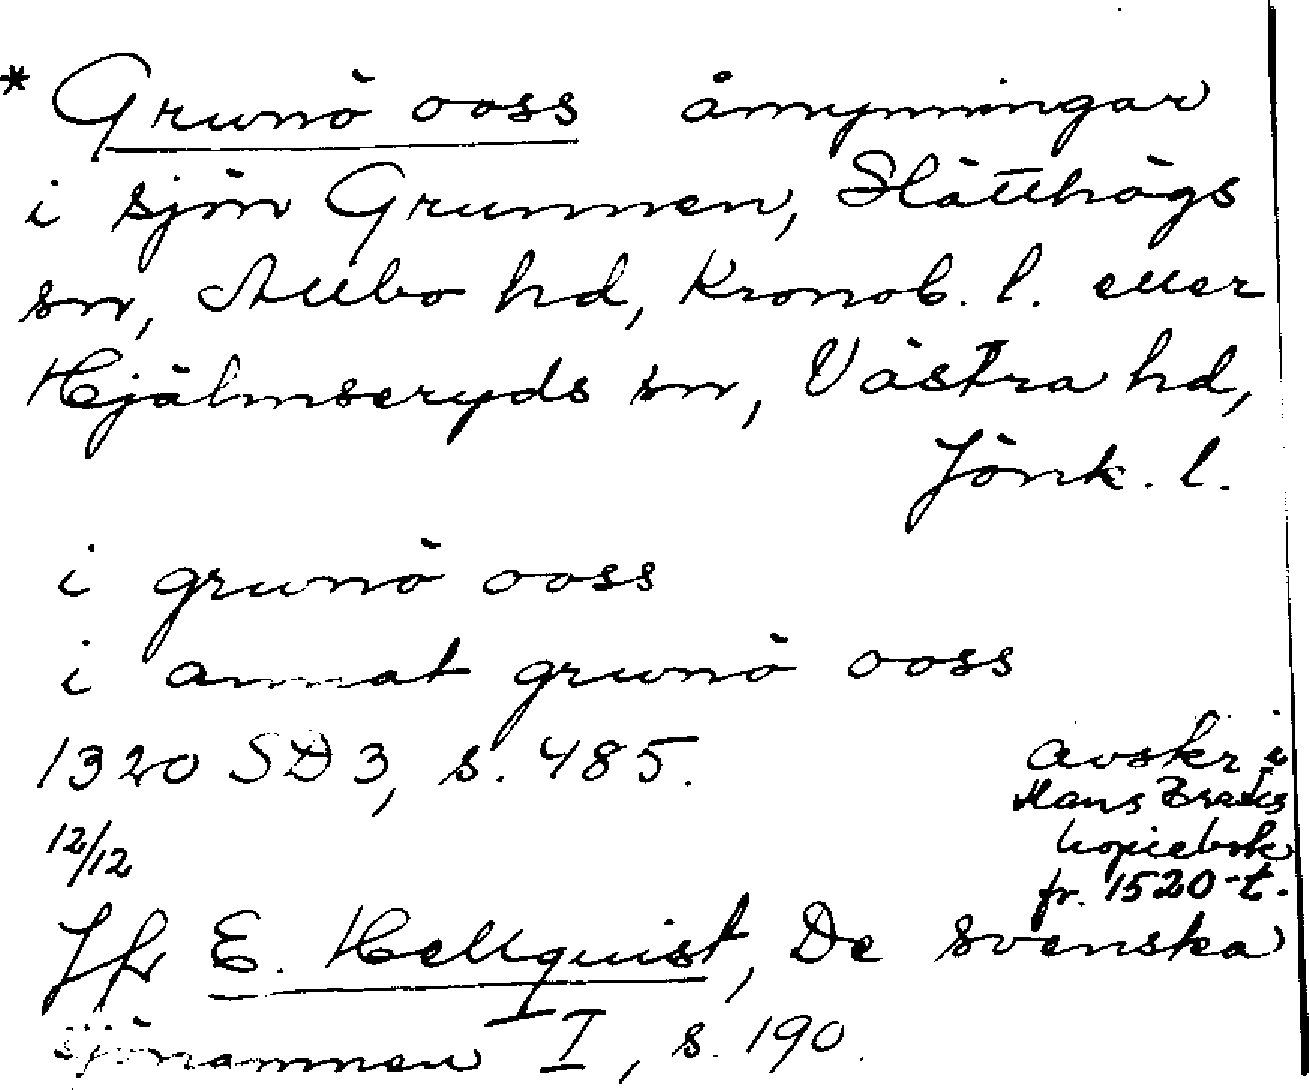 * Grunö ooss åmynningar
i sjön Grunnen, Slätthögs
sn, Allbo hd, Kronob. l. eller
Hjälmseryds sn, Västra hd,
Jönk. l.
i grunö ooss
i annat grunö ooss
1320 SD 3, s. 485.
avskr i
Hans Brasks
kopiebok
fr. 1520-t.
12/12
Jfr E. Hellquist, De svenska
sjönamnen I, s. 190.